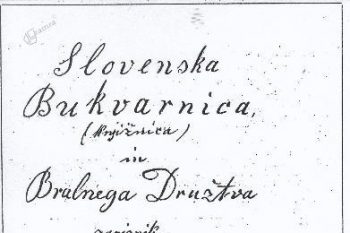 Slovenska
Bukvarnica,
(Knjižnica)
in
Bralnega Družtva
zapisnik